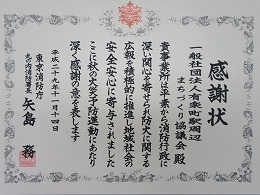 感謝状
一般社団法人有楽町駅周辺
まちづくり協議会 殿
貴事業所は平素から消防行政に
深い関心を寄せられ防火に関する
広報を積極的に推進し地域社会の
安全安心に寄与されました
ここに秋の火災予防運動にあたり
深く感謝の意を表します
平成二十九年十一月十四日
東京消防庁
丸の内消防署長 矢島 務